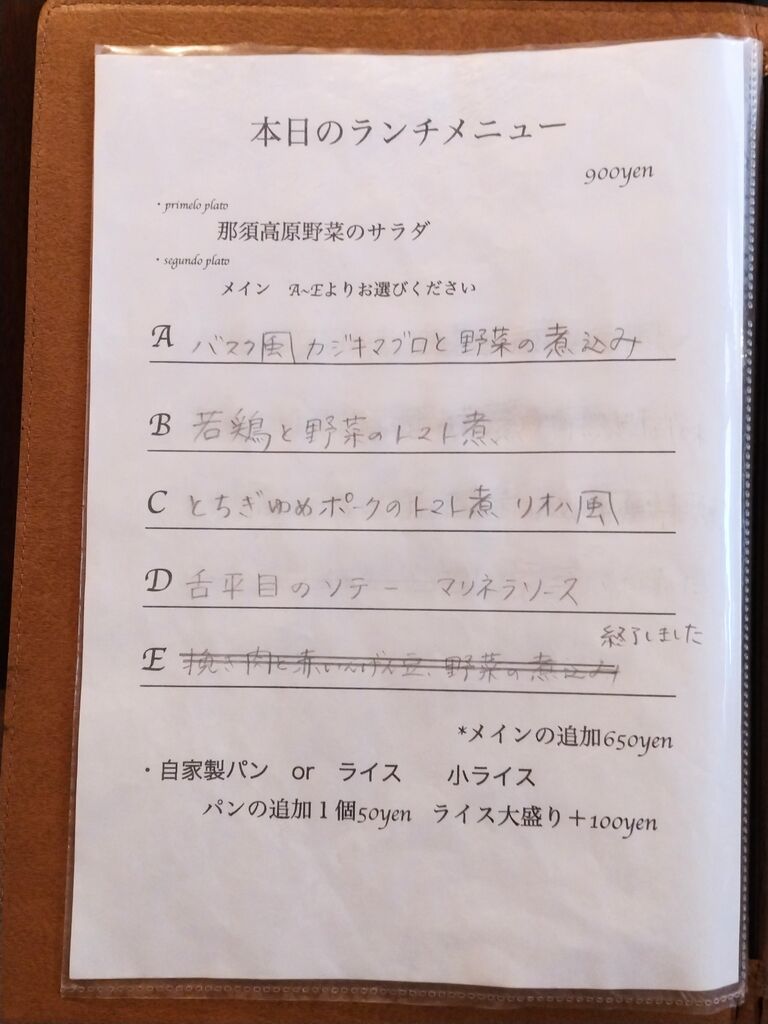 本日のランチメニュー
900yen
・primelo plato
那須高原野菜のサラダ
・segundo plato
メイン A~Eよりお選びください
A バスク風 カジキマグロと野菜の煮込み
B 若鶏と野菜のトマト煮
C とちぎゆめポークのトマト煮 リオハ風
D 舌平目のソテー マリネラソース
終了しました
E 挽き肉と赤いんげん豆、野菜の煮込み
*メインの追加650yen
・自家製パン or ライス 小ライス
パンの追加1個50yen ライス大盛り+100yen